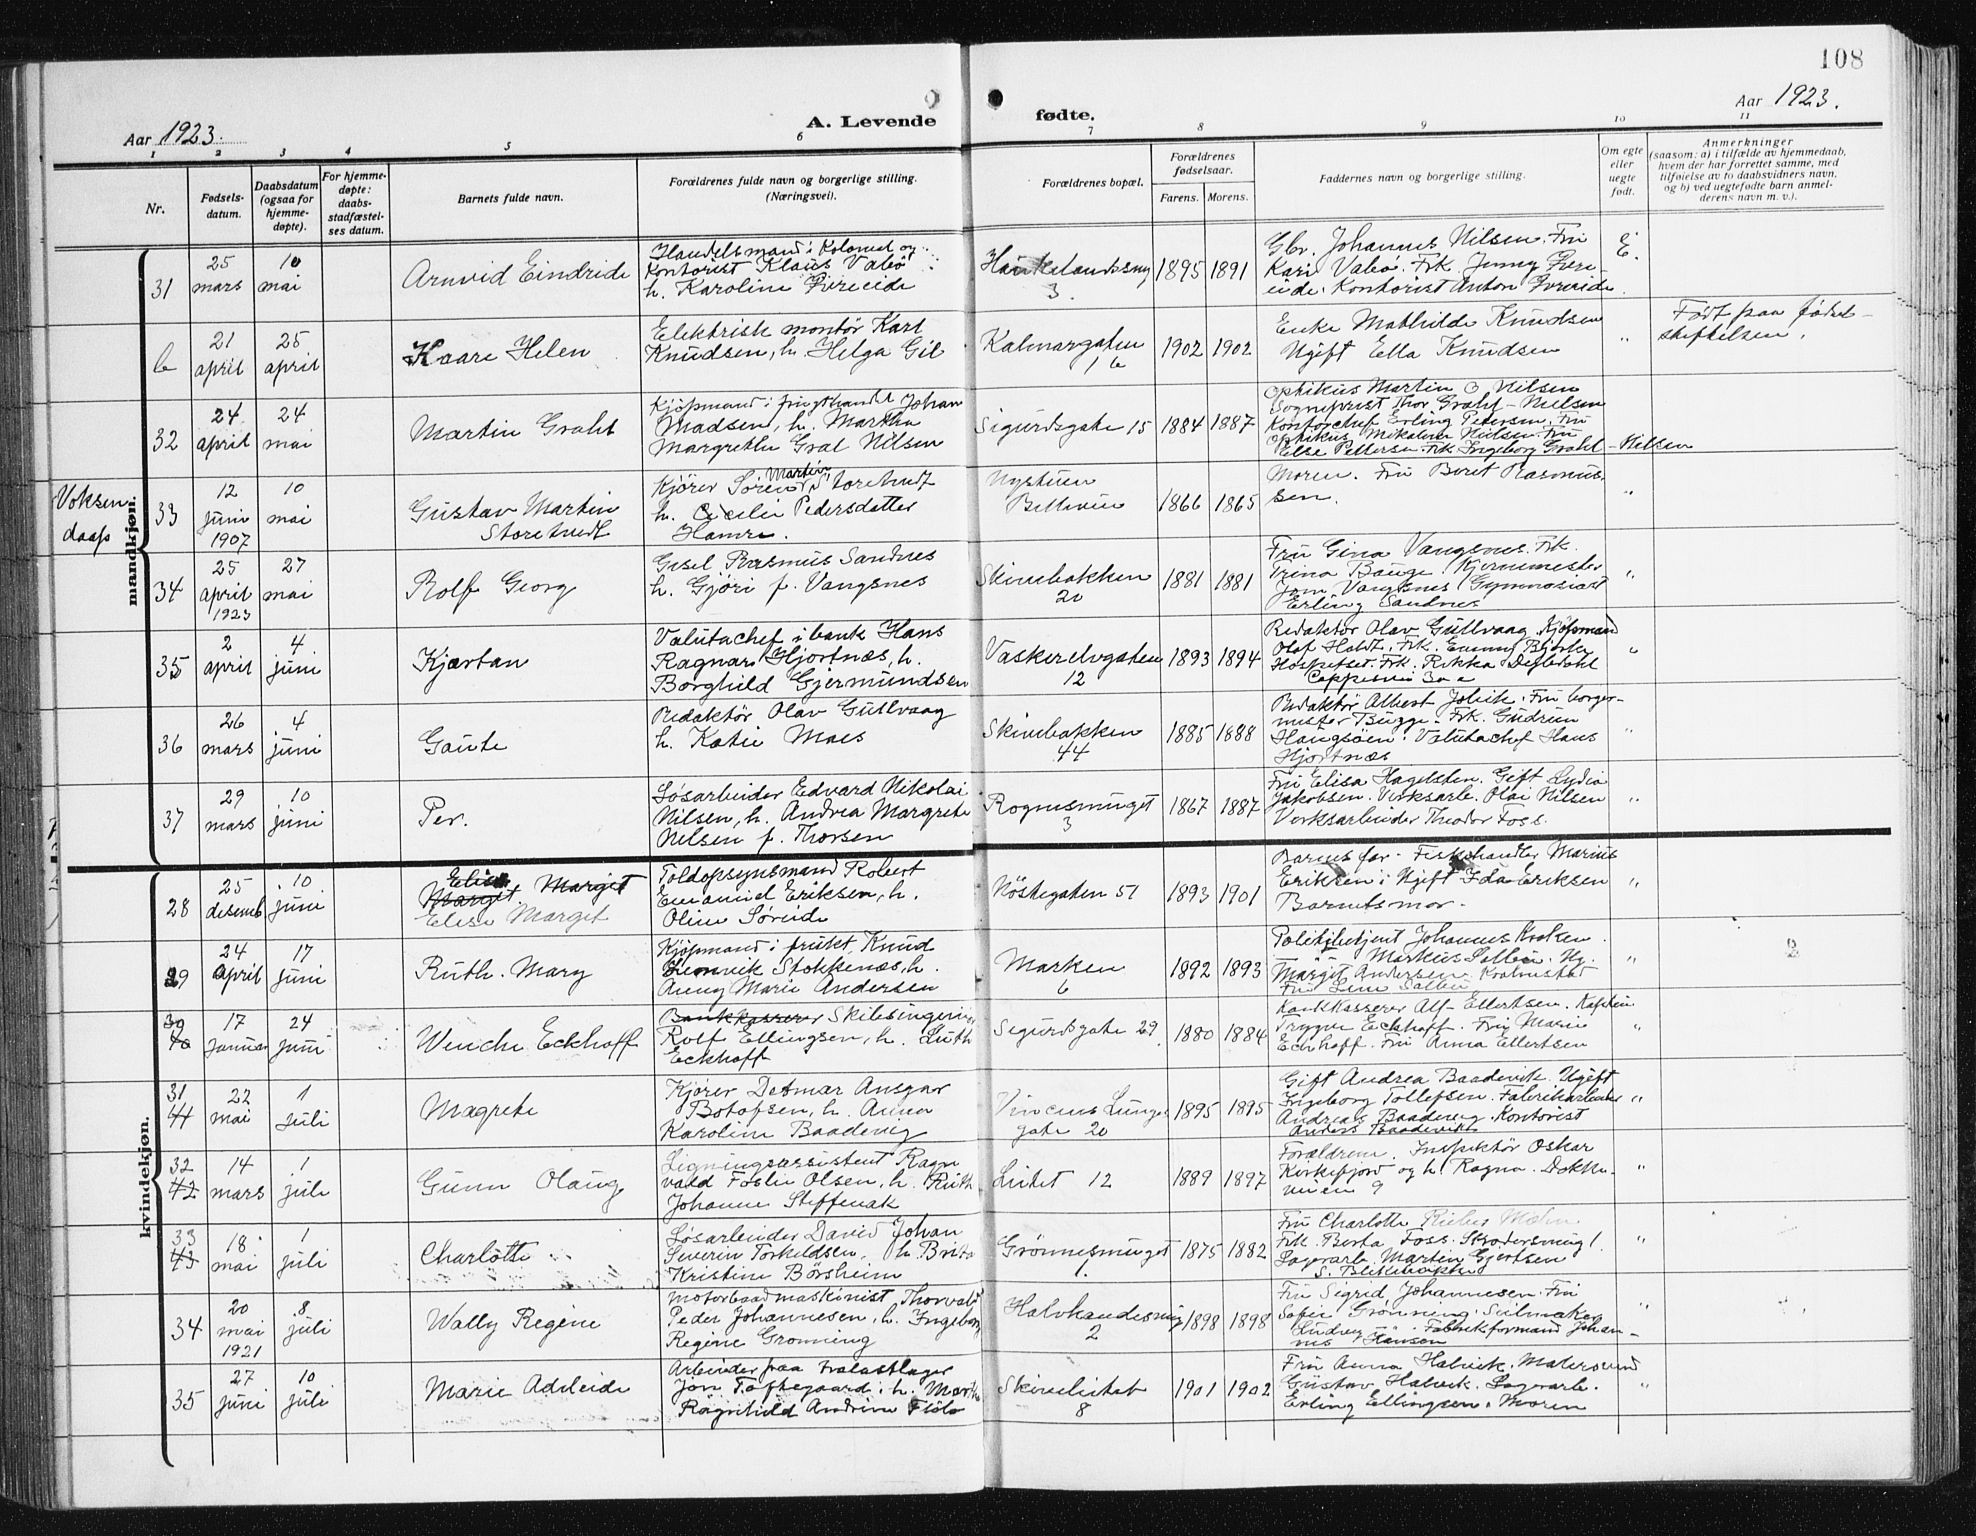 108
Aar 1923.
A. Levende
fødte.
Aar 1923.
1 2 3 4 5 6 7 8 9 10 11
Nr.
Fødsels-
datum.
Daabsdatum
(ogsaa for
hjemme-
døpte).
For hjemme-
døpte:
daabs-
stadfæstel-
ses datum.
Barnets fulde navn.
Forældrenes fulde navn og borgerlige stilling.
(Næringsvei).
Forældrenes bopæl.
Forældrenes
fødselsaar.
Farens. Morens.
Faddernes navn og borgerlige stilling.
Om egte
eller
uegte
født.
Anmerkninger
(saasom: a) i tilfælde av hjemmedaab,
hvem der har forrettet samme, med
tilføielse av to daabsvidners navn,
og b) ved uegtefødte barn anmel-
derens navn m. v.).
mandkjøn.
31
25
mars
10
mai
Arnvid Eindride
Handelsmand i Kolonial og
Kontorist Klaus Vabö
h. Karoline Grereide
Haukelandsvey
3.
1895 1891
Gbr. Johannes Nilsen. Fru
Kari Vabö. Frk. Jenny Grere-
eide. Kontorist Anton Grereide
E.
b
21
april
25
april
Kaare Helen
Elektrisk montör Karl
Knudsen, h. Helga Gil
Kalmargaten
16
1902 1902
Enke Mathilde Knudsen
Ugift Ella Knudsen
"
Født paa fødsel-
stiftelsen.
32
24
april
24
mai
Martin Grahl
Kjöpmand i frugthandel Johan
Madsen, h. Martha
Margrethe Gral Nilsen
Sigurdsgate 15
1884 1887
Optikus Martin O. Nilsen
Sogneprest Thor Grahl-Nielsen
Kontorchef Erling Petersen. Fru
Optikus Mikaline Nielsen. Fru
Else Pettersen. Frk. Ingeborg Grahl-Nielsen
Voksen
daap
33
12
juni
1907
10
mai
Gustav Martin
Storetvedt
Kjörer Sören Martin Storetvedt
h. Cecilie Pedersdatter
Hamre.
Nystuen
Bellevue
1866 1865
Moren. Fru Beret Rasmus-
sen.
"
34
25
april
1923
27
mai
Rolf Georg
Gesel Rasmus Sandnes
h. Gjöri f. Vangsnes
Skivebakken
20
1881 1881
Fru Gina Vangsnes. Frk.
Trina Bauge. Kjernemester
Jom Vangsnes Gymnasiast
Erling Sandnes
"
35
2
april
4
juni
Kjartan
Valutachef i bank Hans
Ragnar Hjortnæs, h.
Borghild Gjermundsen
Vaskerelvgaten
12
1893 1894
Redaktör Olav Gullvaag Kjöpmand
Olaf Holdt. Frk. Emmy Bjerke
Hospitset. Frk. Rikka Degledahl
Cappesvei 30 a
"
36
26
mars
4
juni
Gaute
Redaktör Olav Gullvaag
h. Katie Maes
Skivebakken
44
1885 1888
Redaktör Albert Jolvik. Fru borger-
mester Bugge. Frk. Gudrun
Haugsöen. Valutachef Hans
Hjortnæs
"
37
29
mars
10
juni
Per.
Lösarbeider Edvard Nikolai
Nilsen, h. Andrea Margrete
Nilsen f. Thorsen
Rognesmuget
3
1867 1887
Fru Elisa Hagelsten. Gift Lydia
Jakobsen. Verksarb. Olai Nilsen
Verksarbeider Theodor Foss.
"
kvindekjøn.
28
25
desemb
10
juni
Elise
Margit Margit
Elise Margit
Toldopsynsmand Robert
Emanuel Eriksen, h.
Oline Söreide
Nöstegaten 51
1893 1901
Barnets far. Fiskehandler Marius
Eriksen. Ugift Ida Eriksen
Barnets mor.
"
29
24
april
17
juni
Ruth. Mary
Kjöpmand i frukt Knud
Stokkenæs, h.
Anny Marie Andersen
Marken
6
1892 1893
Politibetjent Johannes Kroken.
" Markus Solbu. Ug.
Margit Andersen.
Fru Line Salbu
"
30
40
17
Januar
24
juni
Wenche Eckhoff
Bankkasserer Skibsingeniør
Rolf Ellingsen, h. Luth
Eckhoff
Sigurdsgate 29
1880 1884
Bankkasserer Alf Ellertsen. Kaptein
Trygve Eckhoff. Fru Marie
Eckhoff. Fru Anna Ellertsen
"
31
41
22
mai
1
juli
Magrete
Kjörer Detmar Ansgar
Botofsen, h. Anna
Karoline Baadevig
Vincens Lunges
gate 20
1895 1895
Gift Andrea Baadevik. Ugift
Ingeborg Tollefsen. Fabrikarbeider
Andreas Baadevig. Kontorist
Anders Baadevik
"
32
42
14
mars
1
juli
Gunn Olaug
Ligningsassistent Ragn
vald Foslie Olsen, h. Ruth
Johanne Steffenak
Lirket 12
1889 1897
Forældrene. Inspektör Oskar
Kirkefjord og h. Ragna. Dokke-
veien 9
"
33
43
18
mai
1
juli
Charlotte
Lösarbeider David Johan
Severin Torkildsen, h. Brita
Kristine Börsheim
Grönnesmuget
1.
1875 1882
Fru Charlotte Rieber Malm
Frk. Berta Foss. Skredersmug 1.
Lagerarb. Martin Gjertsen
S. Blekebakke
"
34
20
mai
1921
8
juli
Wally Regine
Motorbaadmaskinist Thorvald
Peder Johannesen, h. Ingeborg
Regine Grönning
Halvkandesmug
2
1898 1898
Fru Sigrid Johannesen. Fru
Sofie Grönning. Seilmaker
Ludvig " Fabrikformand Johan-
nes Hansen
"
35
27
juni
10
juli
Marie Adeleide
Arbeider paa Tralastlager
Jon Toftegaard. h. Marth
Ragnhild Andrine Flölo
Skivelisbet
8
1901 1902
Fru Anna Halvik. Matersvend
Gustav Halvik. Lagerarb.
Erling Ellingsen. Moren
"